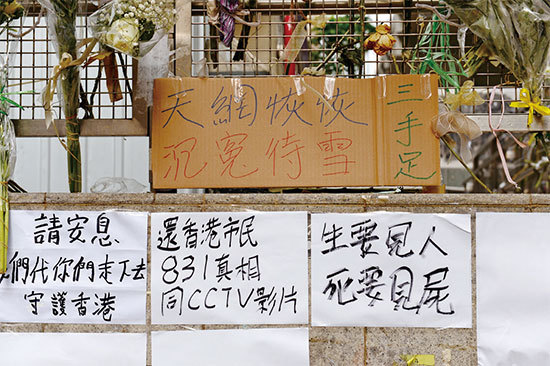 天網恢恢
沉冤待雪
三手足
請安息
們代你們走下去
守護香港
還香港市民
831真相
同CCTV影片
生要見人
死要見屍